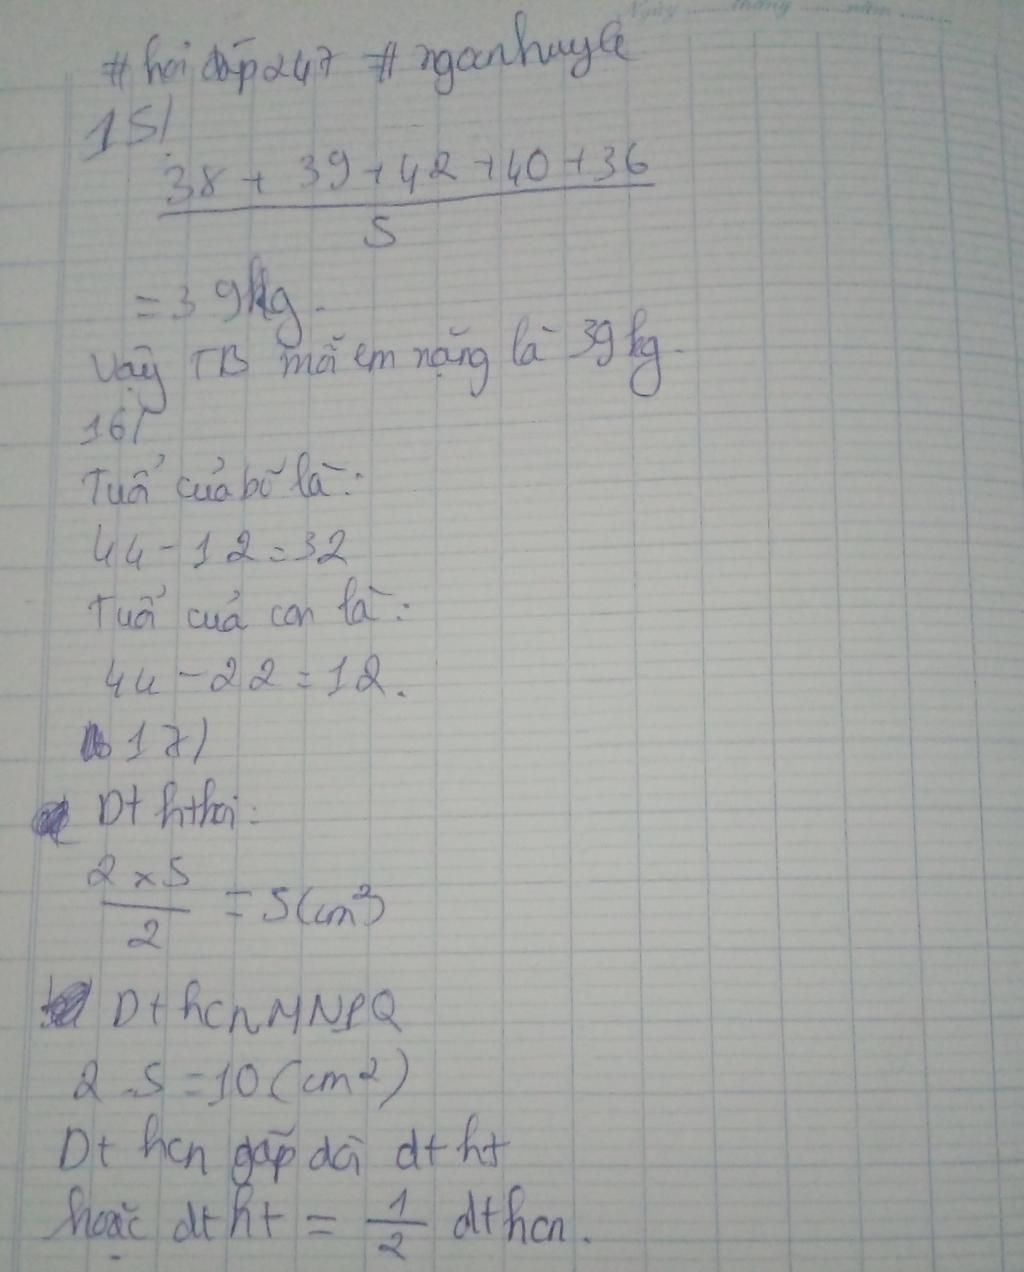 Ngày tháng năm
#hoi đáp247 #nganhuyle
15/
38 + 39 + 42 + 40 + 36
5
= 39kg.
Vậy TB mỗi em nặng là 39kg.
16/
Tuổi của bố là:
44 - 12 = 32
Tuổi của con là:
44 - 22 = 12.
17)
Dt hthoi:
2 x 5
2
= 5(cm²)
Dt hcn MNPQ
2.5 = 10(cm2)
Dt hcn gấp đôi dt ht
hoặc dt ht = 1/2 dthcn.